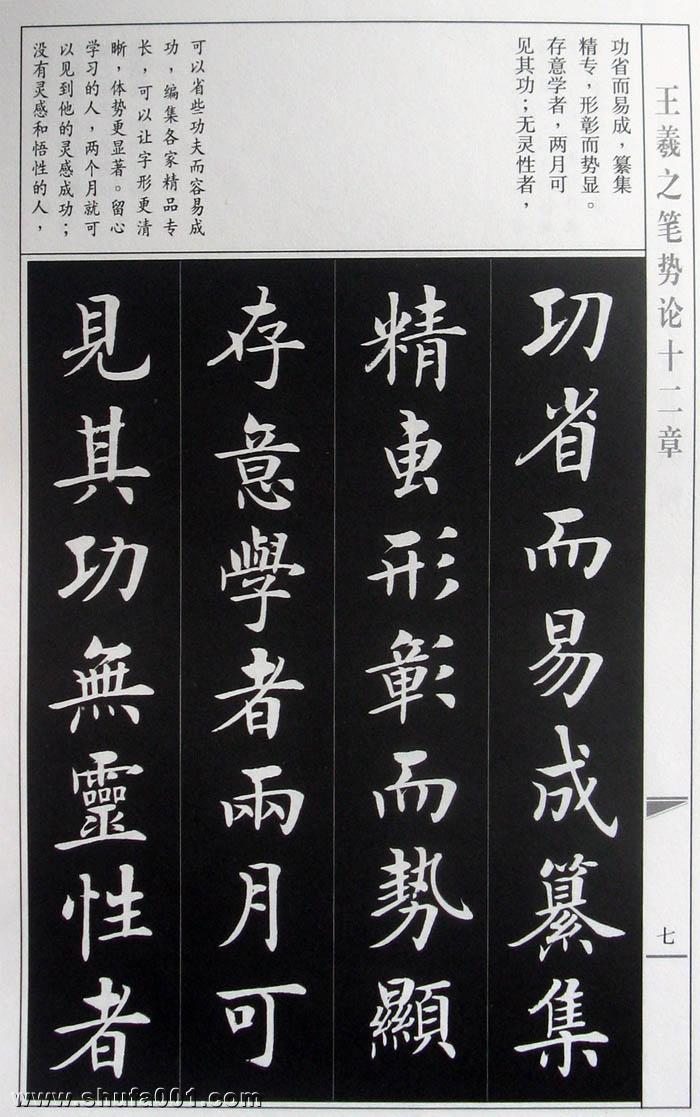 王羲之笔势论十二章
七
功省而易成，纂集
精专，形彰而势显。
存意学者，两月可
见其功；无灵性者，
可以省些功夫而容易成
功，编集各家精品专
长，可以让字形更清
晰，体势更显著。留心
学习的人，两个月就可
以见到他的灵感成功；
没有灵感和悟性的人，
功省而易成纂集
精專形彰而勢顯
存意學者兩月可
見其功無靈性者
www.shufa001.com